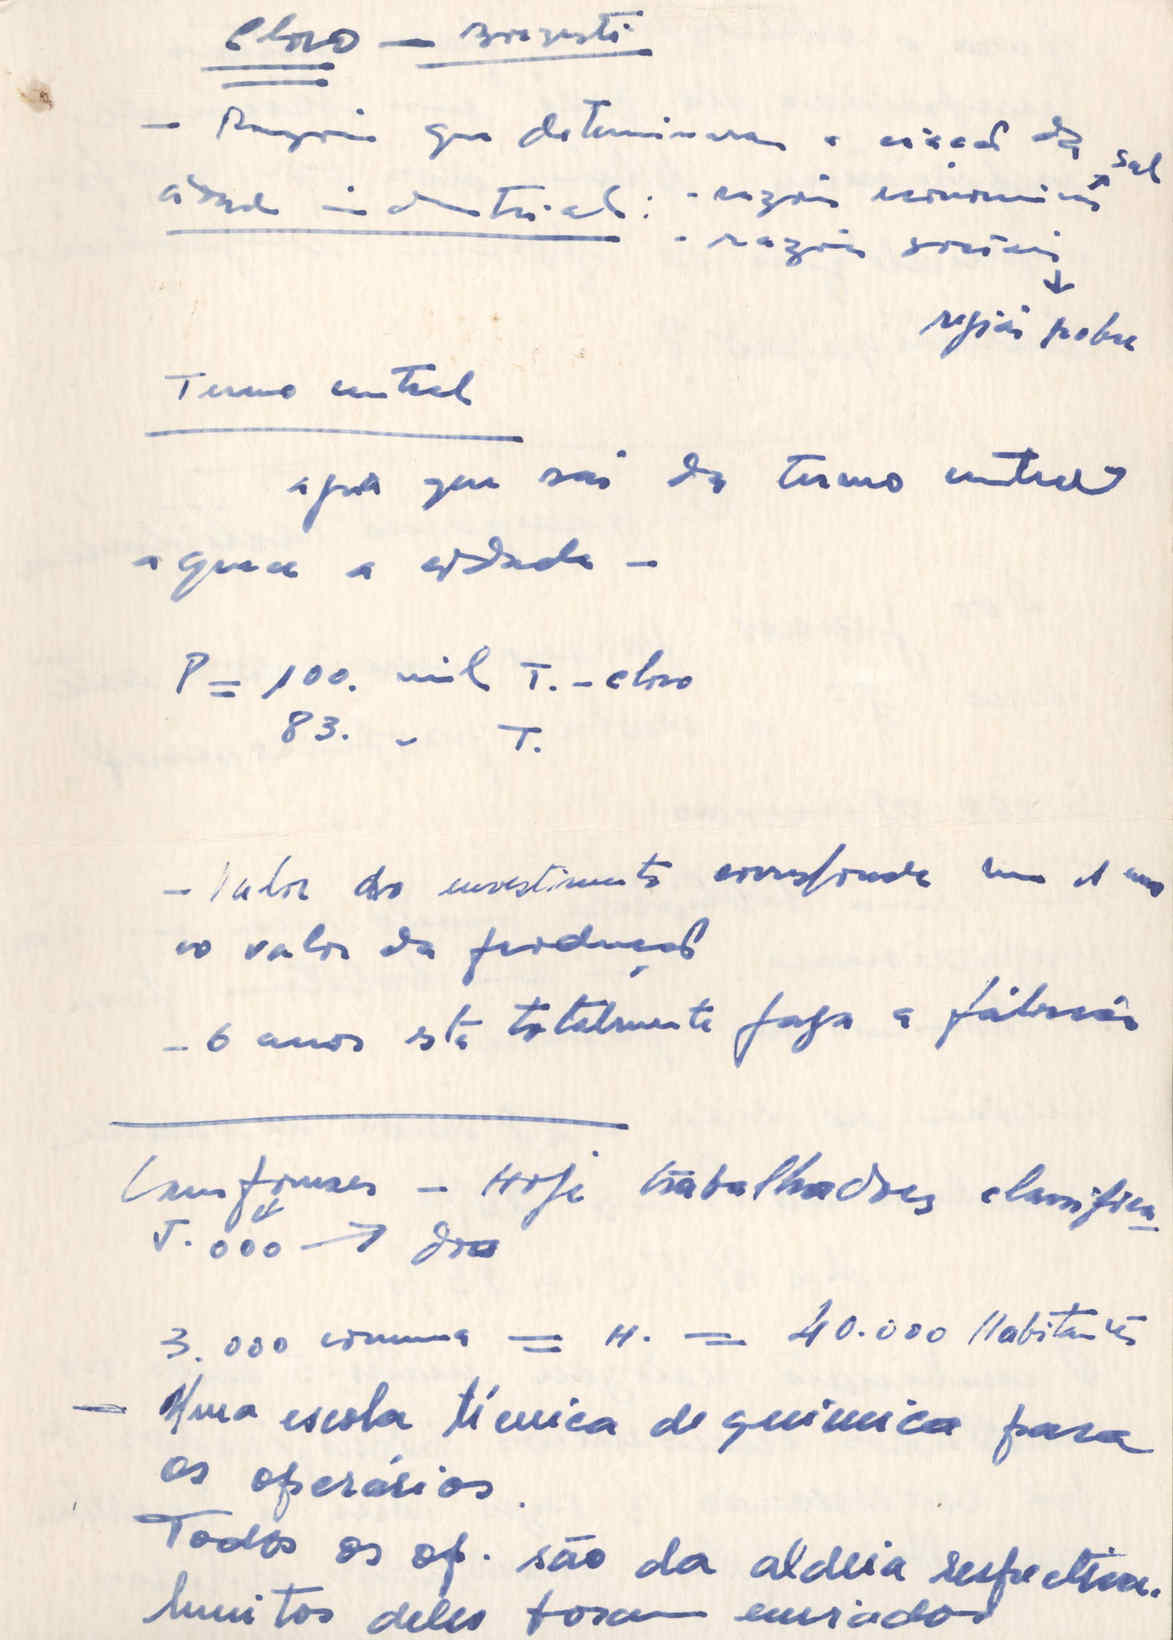 Cloro — Borzesti
- Razões que determinaram a criação da
cidade industrial: - razões economicas → sal
- razões sociais
↓
região pobre
Termo central
agua que sai da termo central
aquece a cidade -
P = 100. mil T. - cloro
83. " T.
- Valor do investimento corresponde em 1 ano
ao valor da produção
- 6 anos está totalmente paga a fábrica
Camponeses - Hoje trabalhadores classifica
↓
5.000 → dos
3.000 comuna = H. = 40.000 Habitantes
- Uma escola técnica de química para
os operários.
Todos os op. são da aldeia respectiva.
Muitos deles foram enviados